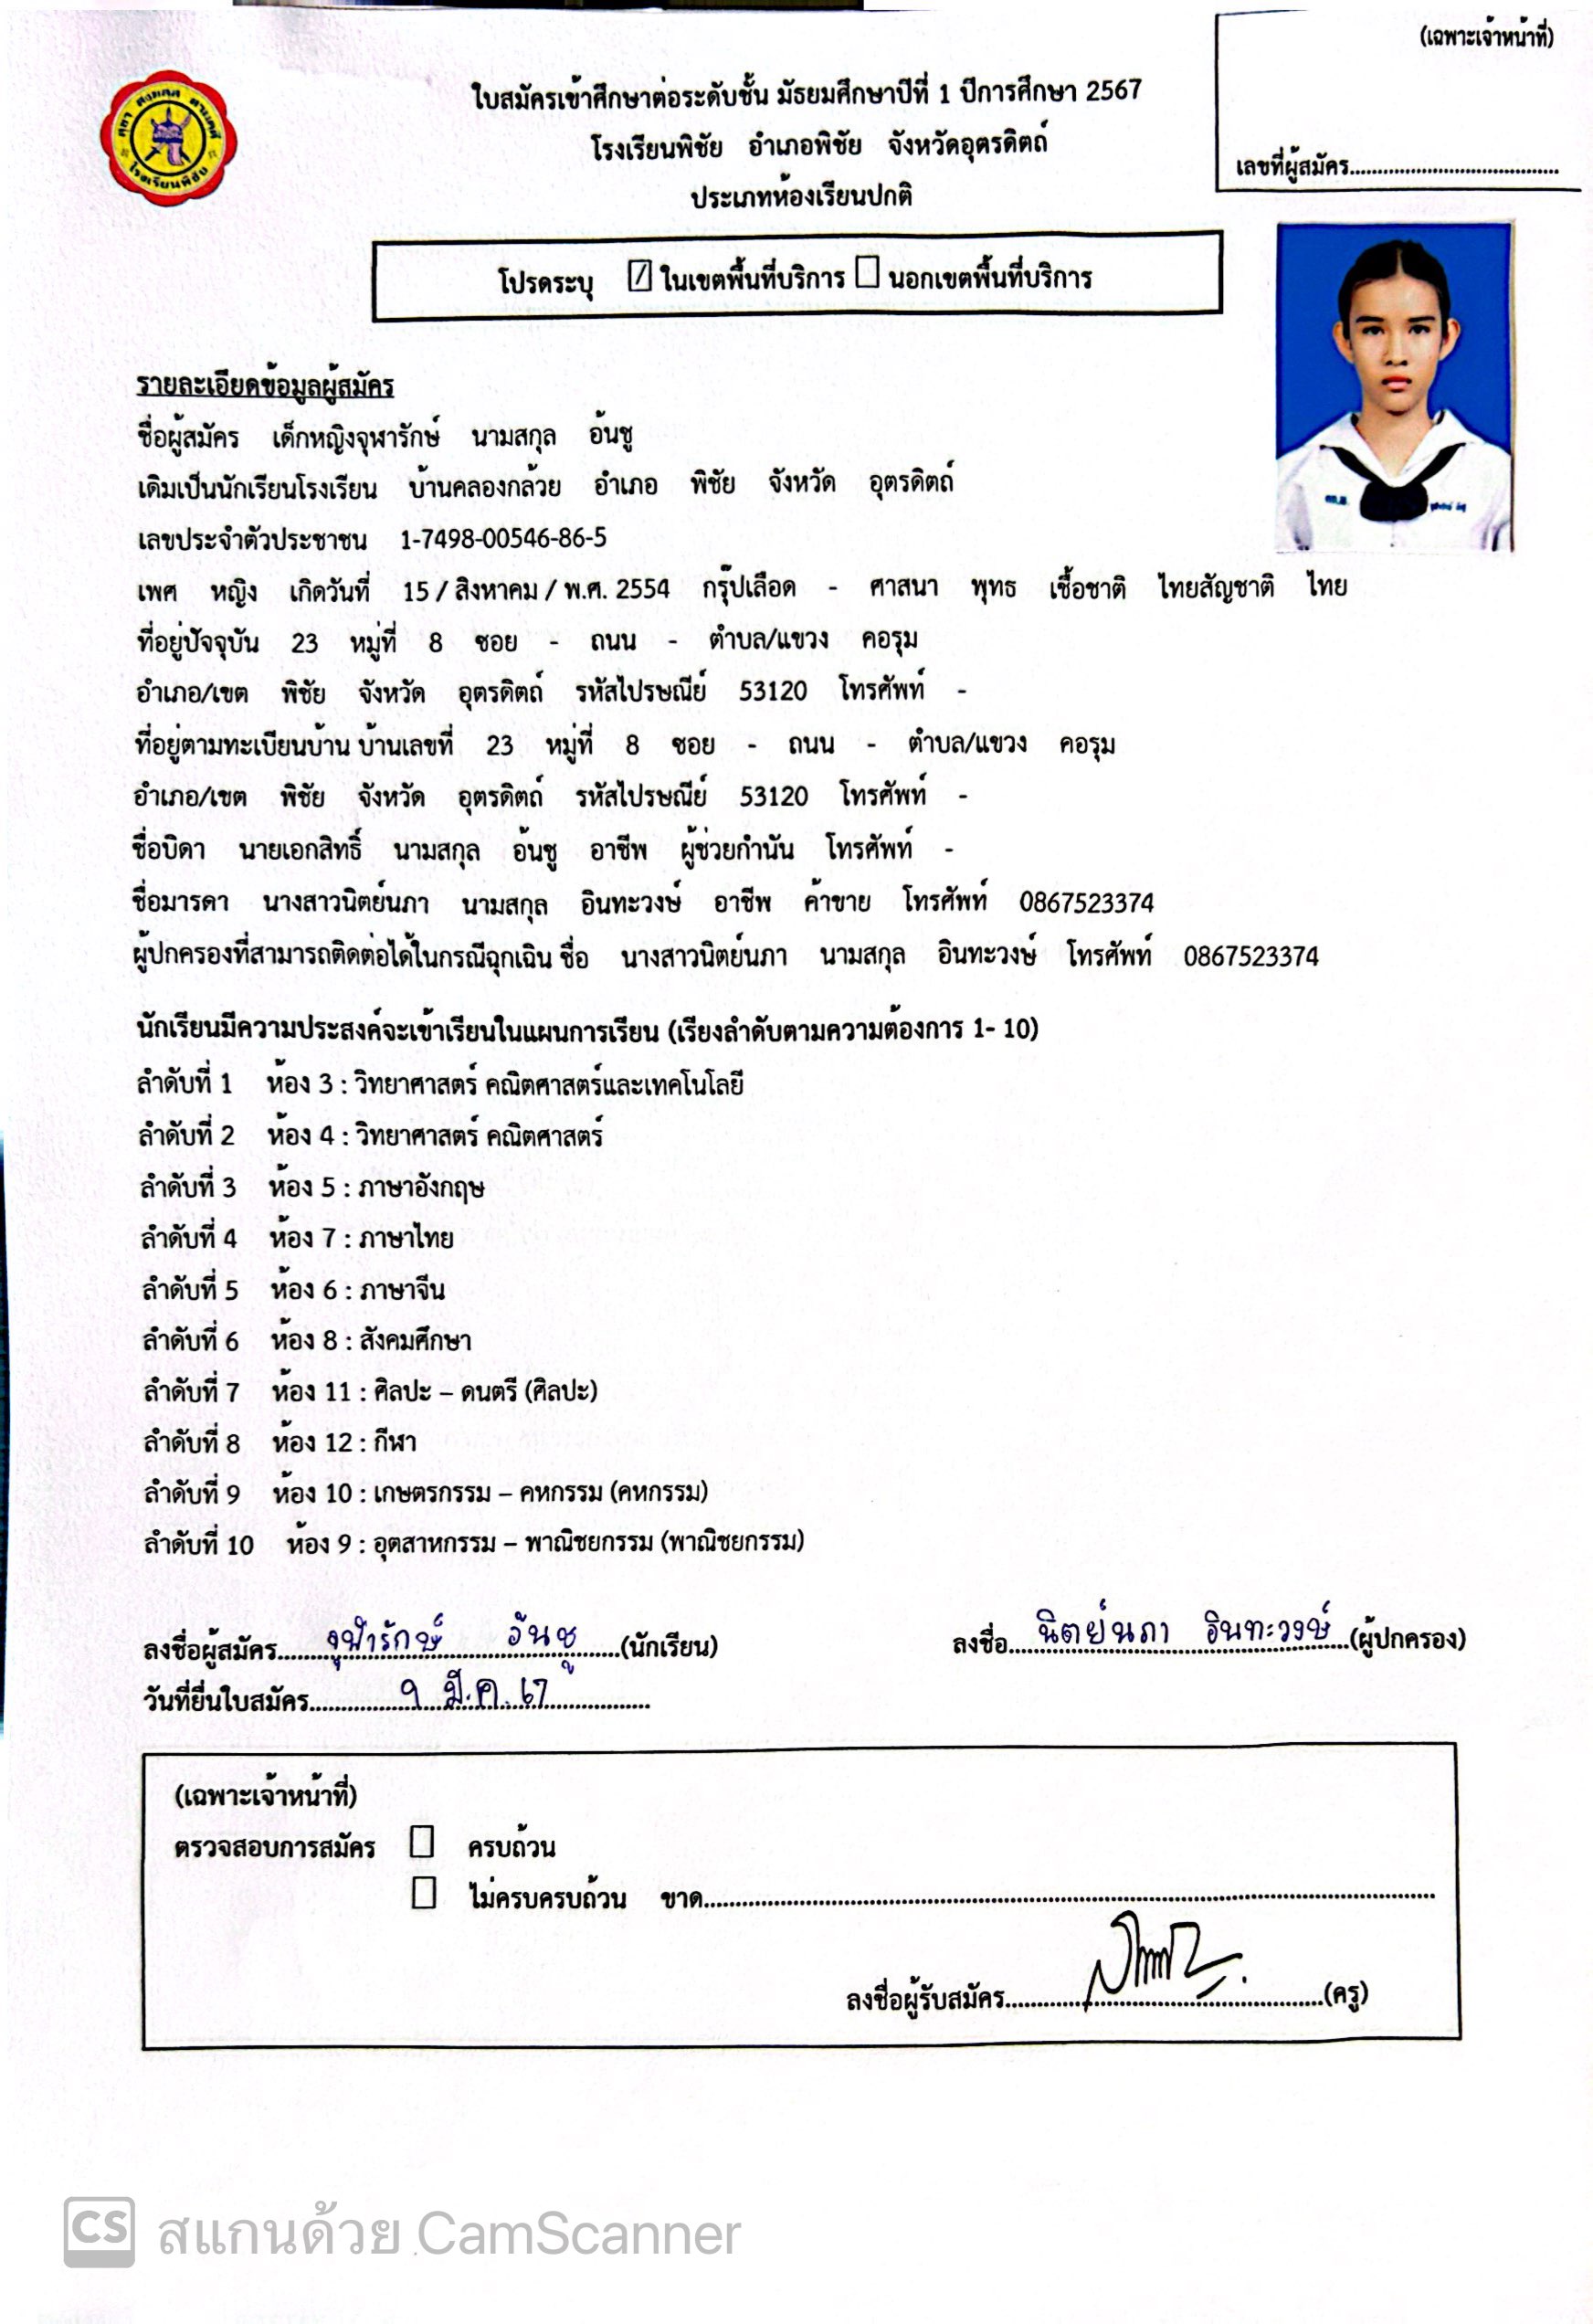 (เฉพาะเจ้าหน้าที่)
เลขที่ผู้สมัคร......................................
ใบสมัครเข้าศึกษาต่อระดับชั้น มัธยมศึกษาปีที่ 1 ปีการศึกษา 2567
โรงเรียนพิชัย อำเภอพิชัย จังหวัดอุตรดิตถ์
ประเภทห้องเรียนปกติ
โรงเรียนพิชัย
โปรดระบุ ☑ ในเขตพื้นที่บริการ ☐ นอกเขตพื้นที่บริการ
รายละเอียดข้อมูลผู้สมัคร
ชื่อผู้สมัคร เด็กหญิงจุฬารักษ์ นามสกุล อ้นชู
เดิมเป็นนักเรียนโรงเรียน บ้านคลองกล้วย อำเภอ พิชัย จังหวัด อุตรดิตถ์
เลขประจำตัวประชาชน 1-7498-00546-86-5
เพศ หญิง เกิดวันที่ 15 / สิงหาคม / พ.ศ. 2554 กรุ๊ปเลือด - ศาสนา พุทธ เชื้อชาติ ไทยสัญชาติ ไทย
ที่อยู่ปัจจุบัน 23 หมู่ที่ 8 ซอย - ถนน - ตำบล/แขวง คอรุม
อำเภอ/เขต พิชัย จังหวัด อุตรดิตถ์ รหัสไปรษณีย์ 53120 โทรศัพท์ -
ที่อยู่ตามทะเบียนบ้าน บ้านเลขที่ 23 หมู่ที่ 8 ซอย - ถนน - ตำบล/แขวง คอรุม
อำเภอ/เขต พิชัย จังหวัด อุตรดิตถ์ รหัสไปรษณีย์ 53120 โทรศัพท์ -
ชื่อบิดา นายเอกสิทธิ์ นามสกุล อ้นชู อาชีพ ผู้ช่วยกำนัน โทรศัพท์ -
ชื่อมารดา นางสาวนิตย์นภา นามสกุล อินทะวงษ์ อาชีพ ค้าขาย โทรศัพท์ 0867523374
ผู้ปกครองที่สามารถติดต่อได้ในกรณีฉุกเฉิน ชื่อ นางสาวนิตย์นภา นามสกุล อินทะวงษ์ โทรศัพท์ 0867523374
นักเรียนมีความประสงค์จะเข้าเรียนในแผนการเรียน (เรียงลำดับตามความต้องการ 1- 10)
ลำดับที่ 1 ห้อง 3 : วิทยาศาสตร์ คณิตศาสตร์และเทคโนโลยี
ลำดับที่ 2 ห้อง 4 : วิทยาศาสตร์ คณิตศาสตร์
ลำดับที่ 3 ห้อง 5 : ภาษาอังกฤษ
ลำดับที่ 4 ห้อง 7 : ภาษาไทย
ลำดับที่ 5 ห้อง 6 : ภาษาจีน
ลำดับที่ 6 ห้อง 8 : สังคมศึกษา
ลำดับที่ 7 ห้อง 11 : ศิลปะ – ดนตรี (ศิลปะ)
ลำดับที่ 8 ห้อง 12 : กีฬา
ลำดับที่ 9 ห้อง 10 : เกษตรกรรม – คหกรรม (คหกรรม)
ลำดับที่ 10 ห้อง 9 : อุตสาหกรรม – พาณิชยกรรม (พาณิชยกรรม)
ลงชื่อผู้สมัคร....จุฬารักษ์ อ้นชู....(นักเรียน) ลงชื่อ....นิตย์นภา อินทะวงษ์....(ผู้ปกครอง)
วันที่ยื่นใบสมัคร....๑ มี.ค. ๖๗....
(เฉพาะเจ้าหน้าที่)
ตรวจสอบการสมัคร ☐ ครบถ้วน
☐ ไม่ครบครบถ้วน ขาด......................................
ลงชื่อผู้รับสมัคร......................................(ครู)
CS สแกนด้วย CamScanner